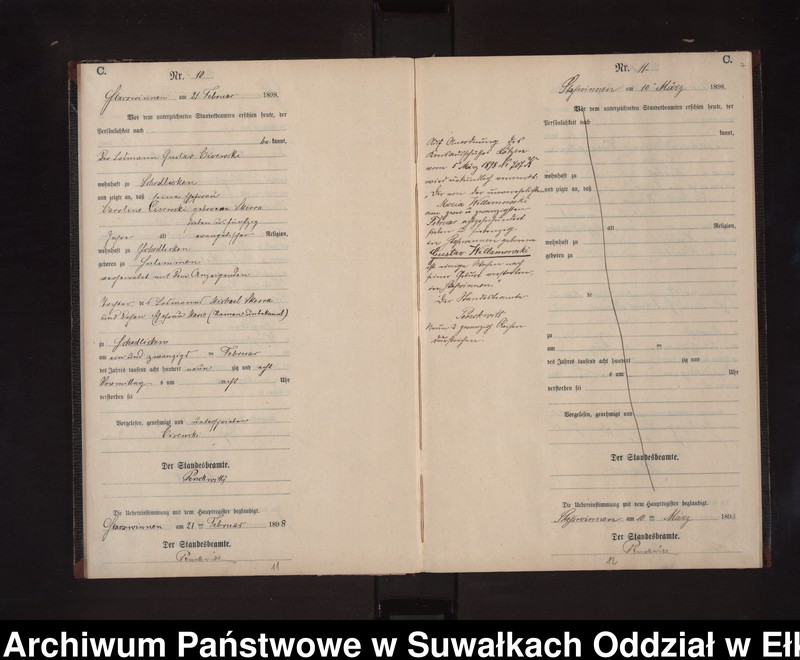 C.
Nr. 10
am 21 Februar 1898.
Vor dem unterzeichneten Standesbeamten erschien heute, der
Persönlichkeit nach
be kannt,
Der Losmann Gustav
wohnhaft zu Schedlisken
und zeigte an, daß seine Ehefrau
Caroline geborene
sieben und fünfzig
Jahre alt evangelischer Religion,
wohnhaft zu Schedlisken
geboren zu
verheirathet mit dem Anzeigenden
Tochter des Losmanns Michael
und dessen Ehefrau Marie (Namen unbekannt)
zu Schedlisken
am ein und zwanzigsten Februar
des Jahres tausend acht hundert neun zig und acht
Vormittag s um acht Uhr
verstorben sei
Vorgelesen, genehmigt und unterschrieben
Der Standesbeamte.
Die Uebereinstimmung mit dem Hauptregister beglaubigt.
am 21 ten Februar 1898
Der Standesbeamte.
11
C.
Nr. 11.
am 10 März 1898.
Vor dem unterzeichneten Standesbeamten erschien heute, der
Persönlichkeit nach
kannt,
Auf Anordnung des
Kreisausschusses Lötzen
vom 5 März 1898
wird vermerkt:
"Der von der unverehelichten
Maria Willamowski
am zwei und zwanzigsten
Februar achtzehnhundert
sieben und siebenzig
in geborene
Gustav Willamowski
ist einige Wochen nach
seiner Geburt verstorben
in
Der Standesbeamte
Neun und zwanzig Reihen
durchstrichen.
wohnhaft zu
und zeigte an, daß
alt Religion,
wohnhaft zu
geboren zu
de
zu
am ten
des Jahres tausend acht hundert zig und
s um Uhr
verstorben sei
Vorgelesen, genehmigt und
Der Standesbeamte.
Die Uebereinstimmung mit dem Hauptregister beglaubigt.
am 10 ten März 1898
Der Standesbeamte.
12
Archiwum Państwowe w Suwałkach Oddział w Ełk